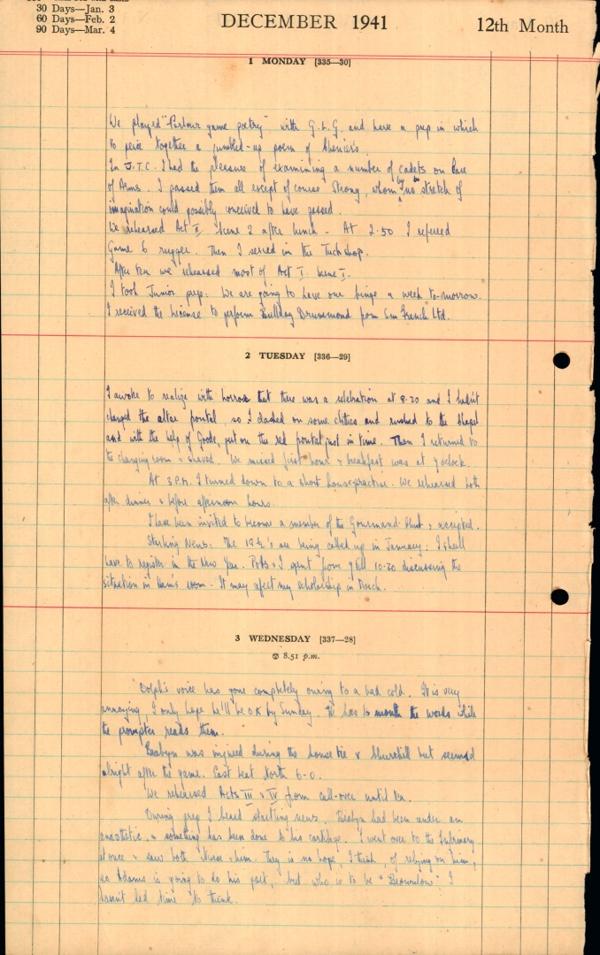 30 Days—Jan. 3
60 Days—Feb. 2
90 Days—Mar. 4
DECEMBER 1941
12th Month
1 MONDAY [335—30]
We played "Parlour game poetry" with G.L.G. and have a prep in which
to peice together a jumbled-up poem of
In J.T.C. I had the pleasure of examining a number of cadets on Care
of Arms. I passed them all except of course Strong, whom by no stretch of
imagination could possibly conceived to have passed.
We rehearsed Act II Scene 2 after lunch. At 2.50 I refereed
Game 6 rugger. Then I served in the Tuckshop.
After tea we rehearsed most of Act I Scene I.
I took Junior prep. We are going to have our binge a week to-morrow.
I received the license to perform Bulldog Drummond from Sam French Ltd.
2 TUESDAY [336—29]
I awoke to realize with horror that there was a celebration at 8.20 and I hadn't
changed the altar frontal, so I dashed on some clothes and rushed to the Chapel
and with the help of Goode, put on the red frontal just in time. Then I returned to
the changing room & shaved. We missed first hour & breakfast was at 9 o'clock.
At 3 P.M. I turned down to a short house practice. We rehearsed both
after dinner & before afternoon hours.
I have been invited to become a member of the Gourmand Club & accepted.
Startling News: The 19½'s are being called up in January. I shall
have to register in the New Year. & I spent from 9 till 10.20 discussing the
situation in room. It may affect my scholarship in March.
3 WEDNESDAY [337—28]
8.51 p.m.
Dolph's voice has gone completely owing to a bad cold. It is very
annoying. I only hope he'll be O.K. by Sunday. He has to mouth the words while
the prompter reads them.
was injured during the house tie v Churchill but seemed
alright after the game. East beat North 6-0.
We rehearsed Acts III & IV from call-over until tea.
During prep I heard startling news. had been under an
anaesthetic & something has been done to his cartilage. I went over to the Infirmary
at once & saw both & him. They is no hope, I think, of relying on him,
so Adams is going to do his part, but who is to be "Brownlow" I
haven't had time to think.